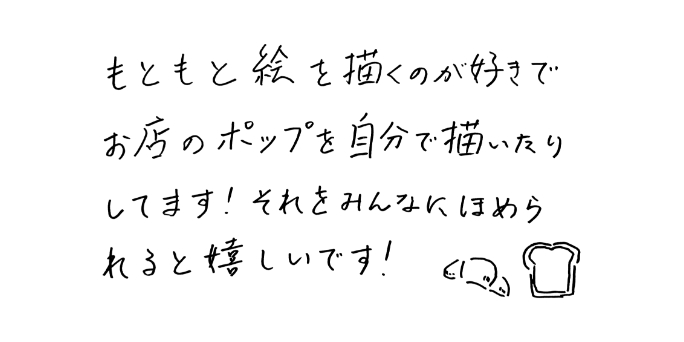 もともと絵を描くのが好きで
お店のポップを自分で描いたり
してます！それをみんなにほめら
れると嬉しいです！